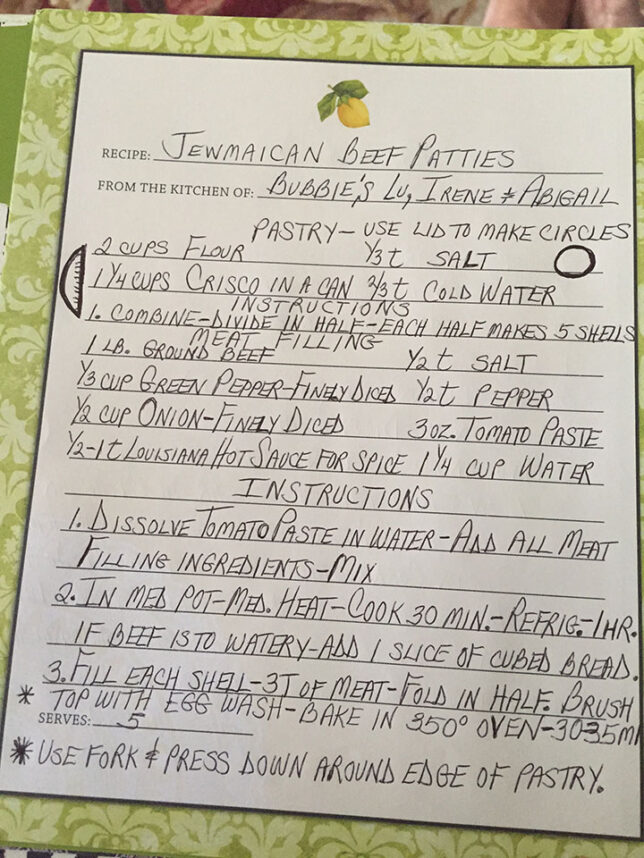 RECIPE: JEWMAICAN BEEF PATTIES
FROM THE KITCHEN OF: BUBBIE'S LU, IRENE & ABIGAIL
PASTRY - USE LID TO MAKE CIRCLES
2 CUPS FLOUR 1/3 t SALT
1 1/4 CUPS CRISCO IN A CAN 2/3 t COLD WATER
INSTRUCTIONS
1. COMBINE-DIVIDE IN HALF-EACH HALF MAKES 5 SHELLS
MEAT FILLING
1 LB. GROUND BEEF 1/2 t SALT
1/3 CUP GREEN PEPPER-FINELY DICED 1/2 t PEPPER
1/2 CUP ONION-FINELY DICED 3 OZ. TOMATO PASTE
1/2-1 t LOUISIANA HOT SAUCE FOR SPICE 1 1/4 CUP WATER
INSTRUCTIONS
1. DISSOLVE TOMATO PASTE IN WATER-ADD ALL MEAT
FILLING INGREDIENTS-MIX
2. IN MED POT-MED. HEAT-COOK 30 MIN.-REFRIG.-1HR.
IF BEEF IS TO WATERY-ADD 1 SLICE OF CUBED BREAD.
3. FILL EACH SHELL-3T OF MEAT-FOLD IN HALF. BRUSH
* TOP WITH EGG WASH-BAKE IN 350° OVEN-30-35 MI
SERVES: 5
* USE FORK & PRESS DOWN AROUND EDGE OF PASTRY.